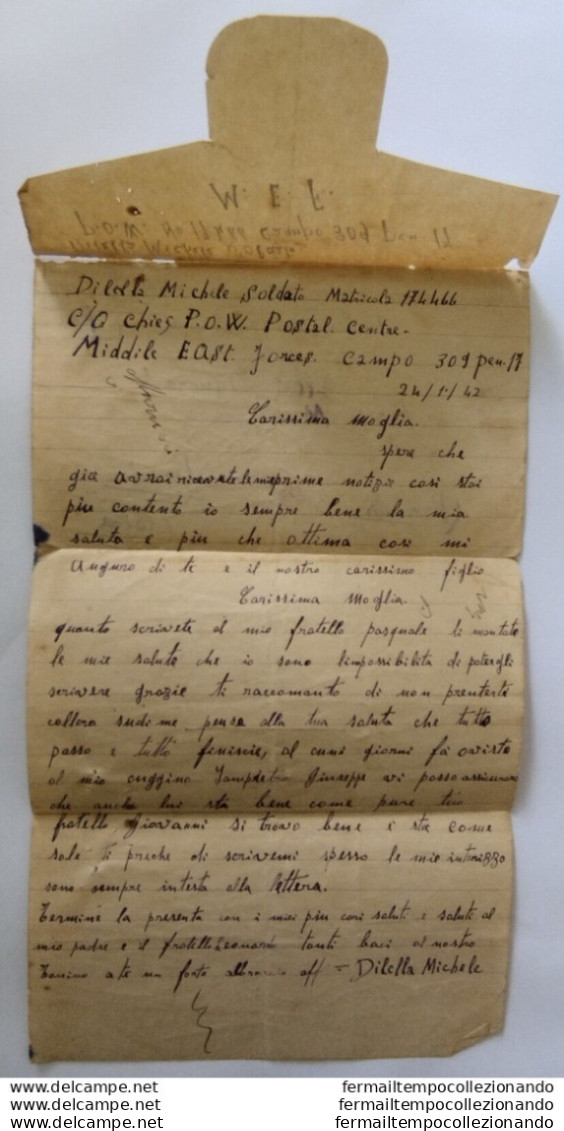 M. E. F.
P.O.W. No 174466 Campo 309 Pen. 17
Dilella Michele Soldato
Dilella Michele Soldato Matricola 174466
C/O Chief P.O.W. Postal Centre-
Middile East. Forces. Campo 309 pen. 17
24/1/42
Carissima moglia.
spero che
gia avrai ricevute le mie prime notizie cosi stai
piu contento io sempre bene la mia
saluta e piu che ottima cosi mi
auguro di te e il nostro carissimo figlio
Carissima moglia.
quanto scrivete al mio fratello pasquale li mantate
le mie salute che io sono limpossibilita di potergli
scrivere grazie ti raccomanto di non prenterti
collera sudime pensa alla tua saluta che tutto
passo e tutto finiscie, al cuni giorni fa ovisto
al mio cuggino Giuseppe vi posso assicurare
che anche lui sta bene come pure tuo
fratello Giovanni si trovo bene e sta come
sole ti preche di scrivemi spesso le mie intirizzo
sono sempre intesta alla lettera.
Termine la presenta con i miei piu cari saluti e saluti al
mio padre e il fratello Leonardo tanti baci al nostro
Tonino a te un forte abbraccio aff - Dilella Michele
fermailtempocollezionando
fermailtempocollezionando
fermailtempocollezionando
www.delcampe.net
www.delcampe.net
www.delcampe.net